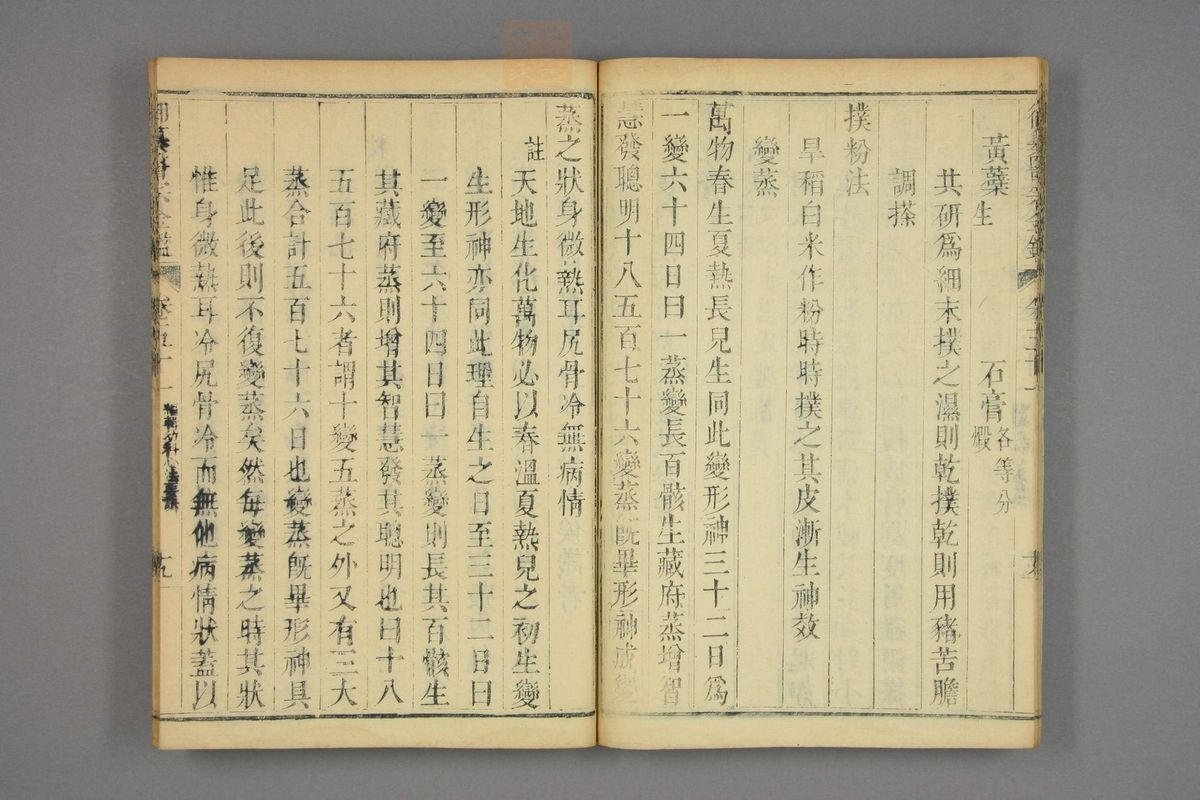 黃蘗生　石膏煆各等分
共研爲細末撲之濕則乾撲乾則用豬苦膽
調搽
撲粉法
旱稻白米作粉時時撲之其皮漸生神效
變蒸
萬物春生夏熱長兒生同此變形神三十二日爲
一變六十四日曰一蒸變長百骸生藏府蒸增智
慧發聰明十八五百七十六變蒸旣畢形神成變
蒸之狀身微熱耳尻骨冷無病情
註天地生化萬物必以春溫夏熱兒之初生變
生形神亦同此理自生之日至三十二日曰
一變至六十四日曰一蒸變則長其百骸生
其藏府蒸則增其智慧發其聰明也曰十八
五百七十六者謂十變五蒸之外又有三大
蒸合計五百七十六日也變蒸旣畢形神具
足此後則不復變蒸矣然每變蒸之時其狀
惟身微熱耳冷尻骨冷而無他病情狀蓋以